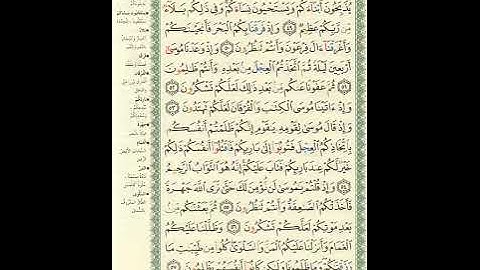 يُذَبِّحُونَ أَبْنَآءَكُمْ وَيَسْتَحْيُونَ نِسَآءَكُمْ وَفِى ذَٰلِكُم بَلَآءٌ
مِّن رَّبِّكُمْ عَظِيمٌ ٤٩ وَإِذْ فَرَقْنَا بِكُمُ ٱلْبَحْرَ فَأَنجَيْنَٰكُمْ
وَأَغْرَقْنَآ ءَالَ فِرْعَوْنَ وَأَنتُمْ تَنظُرُونَ ٥٠ وَإِذْ وَٰعَدْنَا مُوسَىٰٓ
أَرْبَعِينَ لَيْلَةً ثُمَّ ٱتَّخَذْتُمُ ٱلْعِجْلَ مِنۢ بَعْدِهِۦ وَأَنتُمْ ظَٰلِمُونَ
٥١ ثُمَّ عَفَوْنَا عَنكُم مِّنۢ بَعْدِ ذَٰلِكَ لَعَلَّكُمْ تَشْكُرُونَ ٥٢
وَإِذْ ءَاتَيْنَا مُوسَى ٱلْكِتَٰبَ وَٱلْفُرْقَانَ لَعَلَّكُمْ تَهْتَدُونَ ٥٣
وَإِذْ قَالَ مُوسَىٰ لِقَوْمِهِۦ يَٰقَوْمِ إِنَّكُمْ ظَلَمْتُمْ أَنفُسَكُم
بِٱتِّخَاذِكُمُ ٱلْعِجْلَ فَتُوبُوٓا۟ إِلَىٰ بَارِئِكُمْ فَٱقْتُلُوٓا۟ أَنفُسَكُمْ ذَٰلِكُمْ
خَيْرٌ لَّكُمْ عِندَ بَارِئِكُمْ فَتَابَ عَلَيْكُمْ إِنَّهُۥ هُوَ ٱلتَّوَّابُ ٱلرَّحِيمُ
٥٤ وَإِذْ قُلْتُمْ يَٰمُوسَىٰ لَن نُّؤْمِنَ لَكَ حَتَّىٰ نَرَى ٱللَّهَ جَهْرَةً
فَأَخَذَتْكُمُ ٱلصَّٰعِقَةُ وَأَنتُمْ تَنظُرُونَ ٥٥ ثُمَّ بَعَثْنَٰكُم مِّنۢ
بَعْدِ مَوْتِكُمْ لَعَلَّكُمْ تَشْكُرُونَ ٥٦ وَظَلَّلْنَا عَلَيْكُمُ
ٱلْغَمَامَ وَأَنزَلْنَا عَلَيْكُمُ ٱلْمَنَّ وَٱلسَّلْوَىٰ كُلُوا۟ مِن طَيِّبَٰتِ مَا
رَزَقْنَٰكُمْ وَمَا ظَلَمُونَا وَلَٰكِن كَانُوٓا۟ أَنفُسَهُمْ يَظْلِمُونَ ٥٧